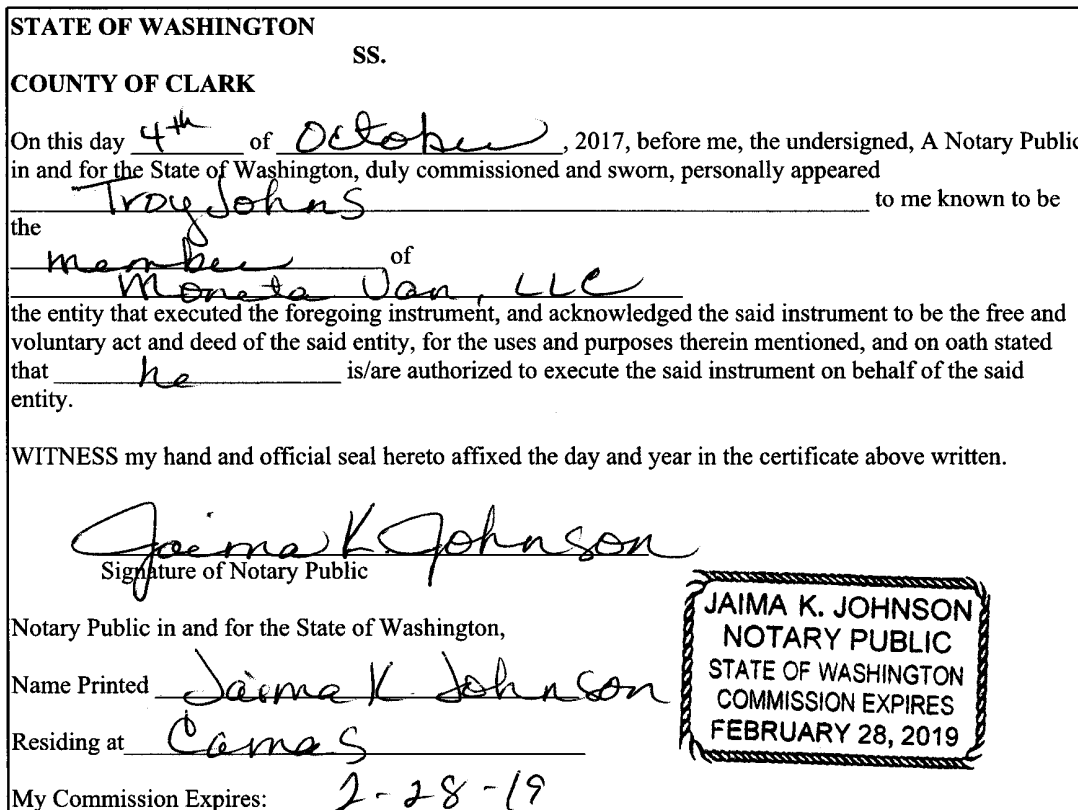 STATE OF WASHINGTON
SS.
COUNTY OF CLARK
On this day 4th of October, 2017, before me, the undersigned, A Notary Public
in and for the State of Washington, duly commissioned and sworn, personally appeared
Troy Johns to me known to be
the
member of
Moneta Van, LLC
the entity that executed the foregoing instrument, and acknowledged the said instrument to be the free and
voluntary act and deed of the said entity, for the uses and purposes therein mentioned, and on oath stated
that he is/are authorized to execute the said instrument on behalf of the said
entity.
WITNESS my hand and official seal hereto affixed the day and year in the certificate above written.
Jaima K. Johnson
Signature of Notary Public
Notary Public in and for the State of Washington,
Name Printed Jaima K Johnson
Residing at Camas
My Commission Expires: 2-28-19
JAIMA K. JOHNSON
NOTARY PUBLIC
STATE OF WASHINGTON
COMMISSION EXPIRES
FEBRUARY 28, 2019